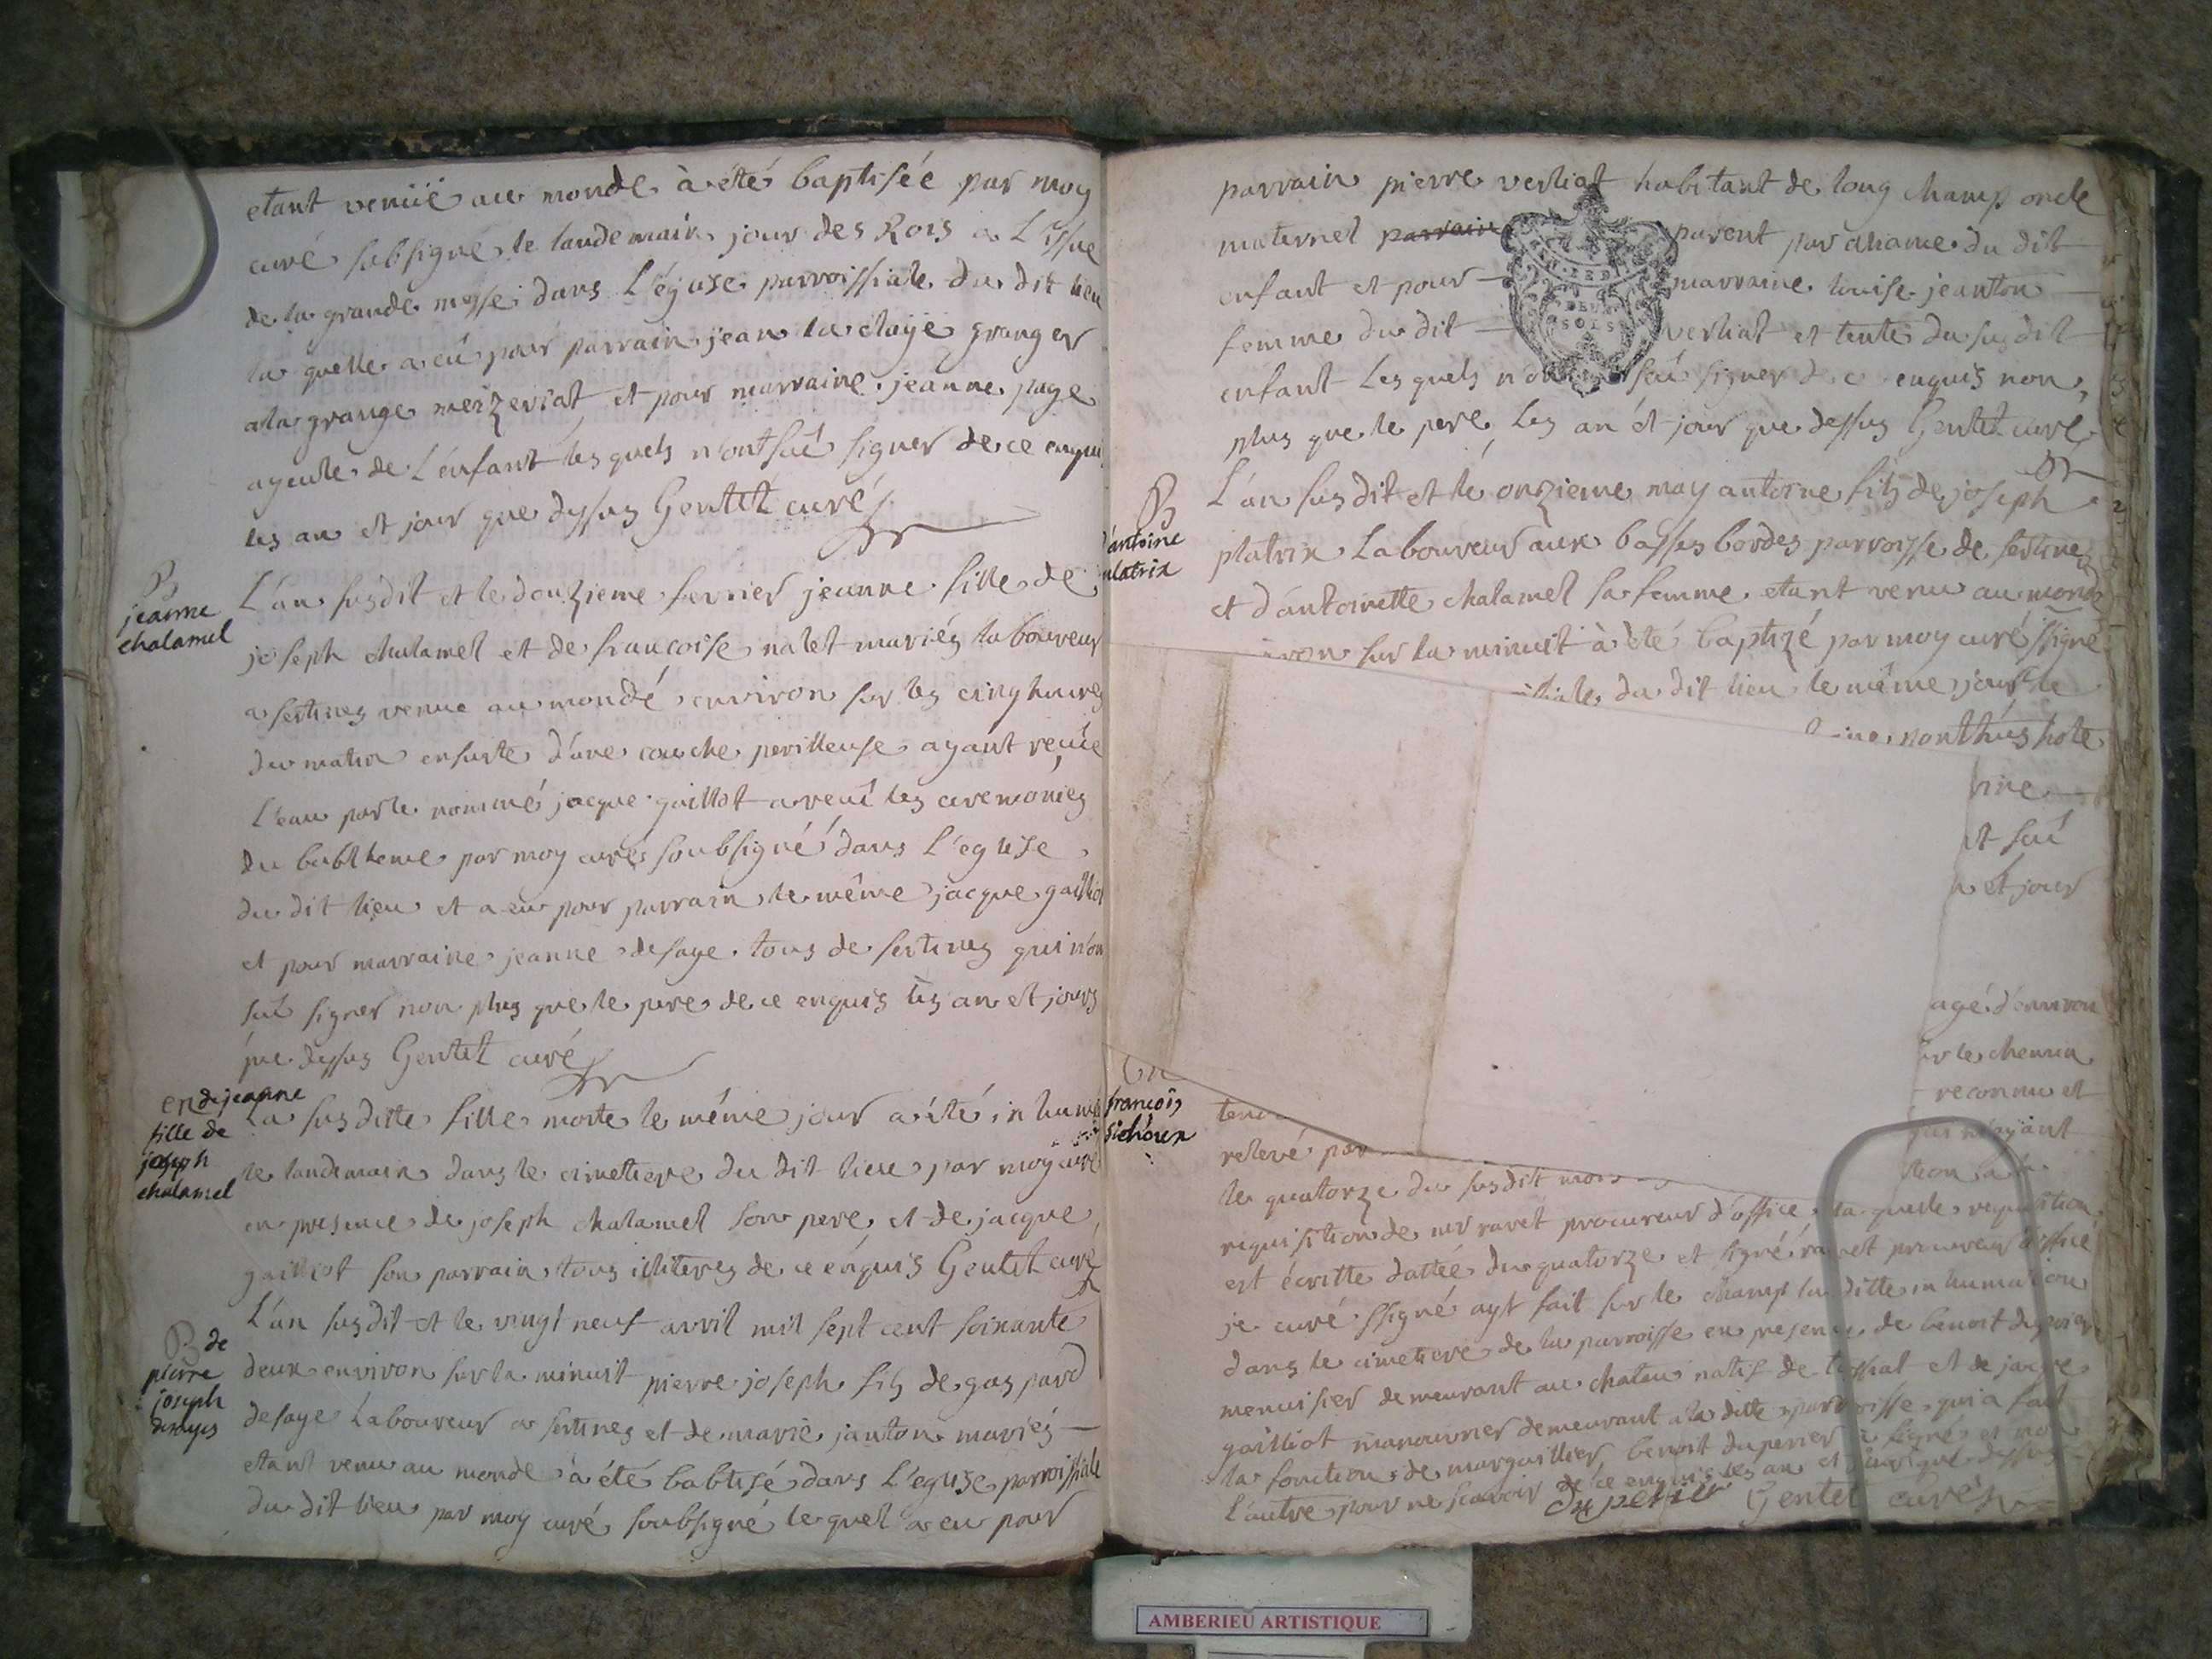 etant venüe au monde à été baptisée par moy
curé sabsigné le landemain jour des Rois a L'issue
de la grande messe dans L'égŭse parroissiale du dit lieu
la quelle a eû pour parrain jean la claÿe granger
a la grange meizeriat et pour marraine jeanne page
ayeule de L'enfant les quels n'ont saû signer de ce enqui
les an et jour que dessus Gentet curé
B
jeanne
chalamel
L'an susdit et le douzieme fevrier jeanne fille de
joseph chalamel et de francoise nalet mariés laboureur
a sertines venue au monde environ sur les cinq heures
du matin ensuite d'une couche perilleuse ayant reçüe
L'eau par le nommé jacque gaillot a receû les ceremonies
du babtheme par moy curé soubsigné dans L'eglise
du dit lieu et a eu pour parrain le même jacque gailliot
et pour marraine jeanne desaye tous de sertines qui n'on
saû signer non plus que le pere de ce enquis les an et jours
que dessus Gentet curé
en de jeanne
fille de
joseph
chalamel
La susditte fille morte le même jour a été inhumé
le landemain dans le cimetiere du dit lieu par moy curé
en presence de joseph chalamel son pere et de jacque
gailliot son parrain tous illiteres de ce enquis Gentet curé
B de
pierre
joseph
desayes
L'an susdit et le vingt neuf avril mil sept cent soixante
deux environ sur la minuit pierre joseph fils de gaspard
desaye Laboureur a sertines et de marie janton mariés
etant venu au monde à été babtisé dans L'eglise parroissiale
du dit lieu par moy curé soubsigné le quel a eu pour
parrain pierre verliat habitant de long champ oncle
maternel parrain parent par chame du dit
enfant et pour marraine louise jeanton
femme du dit verliat et tente du susdit
enfant Les quels n'ont saû signer de ce enquis non
plus que le pere Les an et jour que dessus Gentet curé
DEUX
SOLS
B
d'antoine
platrix
L'an susdit et le onzieme may antoine fils de joseph
platrix Laboureur aux basses bordes parroisse de sertines
et d'antoinette chalamel sa femme etant venu au monde
iron sur la minuit à été baptizé par moy curé ssigné
ssiale du dit lieu le même jour le
monthus hote
rine
nt saû
n et jour
agé d'environ
ur le chemin
reconnu et
par n'ayant
tion la
En
francois
sichoux
tenu
relevé par
le quatorze du susdit mois
requisition de mr ravet procureur d'office la quele requisition
est écritte dattée du quatorze et signé ravet procureur d'office
je curé ssigné ayt fait sur le champ la ditte inhumation
dans le cimetiere de la parroisse en presence de benoit duperier
menuisier demeurant au chateau natif de tossiat et de jacque
gailliot manouvrier demeurant a la ditte parroisse qui a fait
la fonction de marguillier benoit duperier a signé et non
L'autre pour ne scavoir de ce enquis les an et jour que dessus
duperier Gentet curé
AMBERIEU ARTISTIQUE